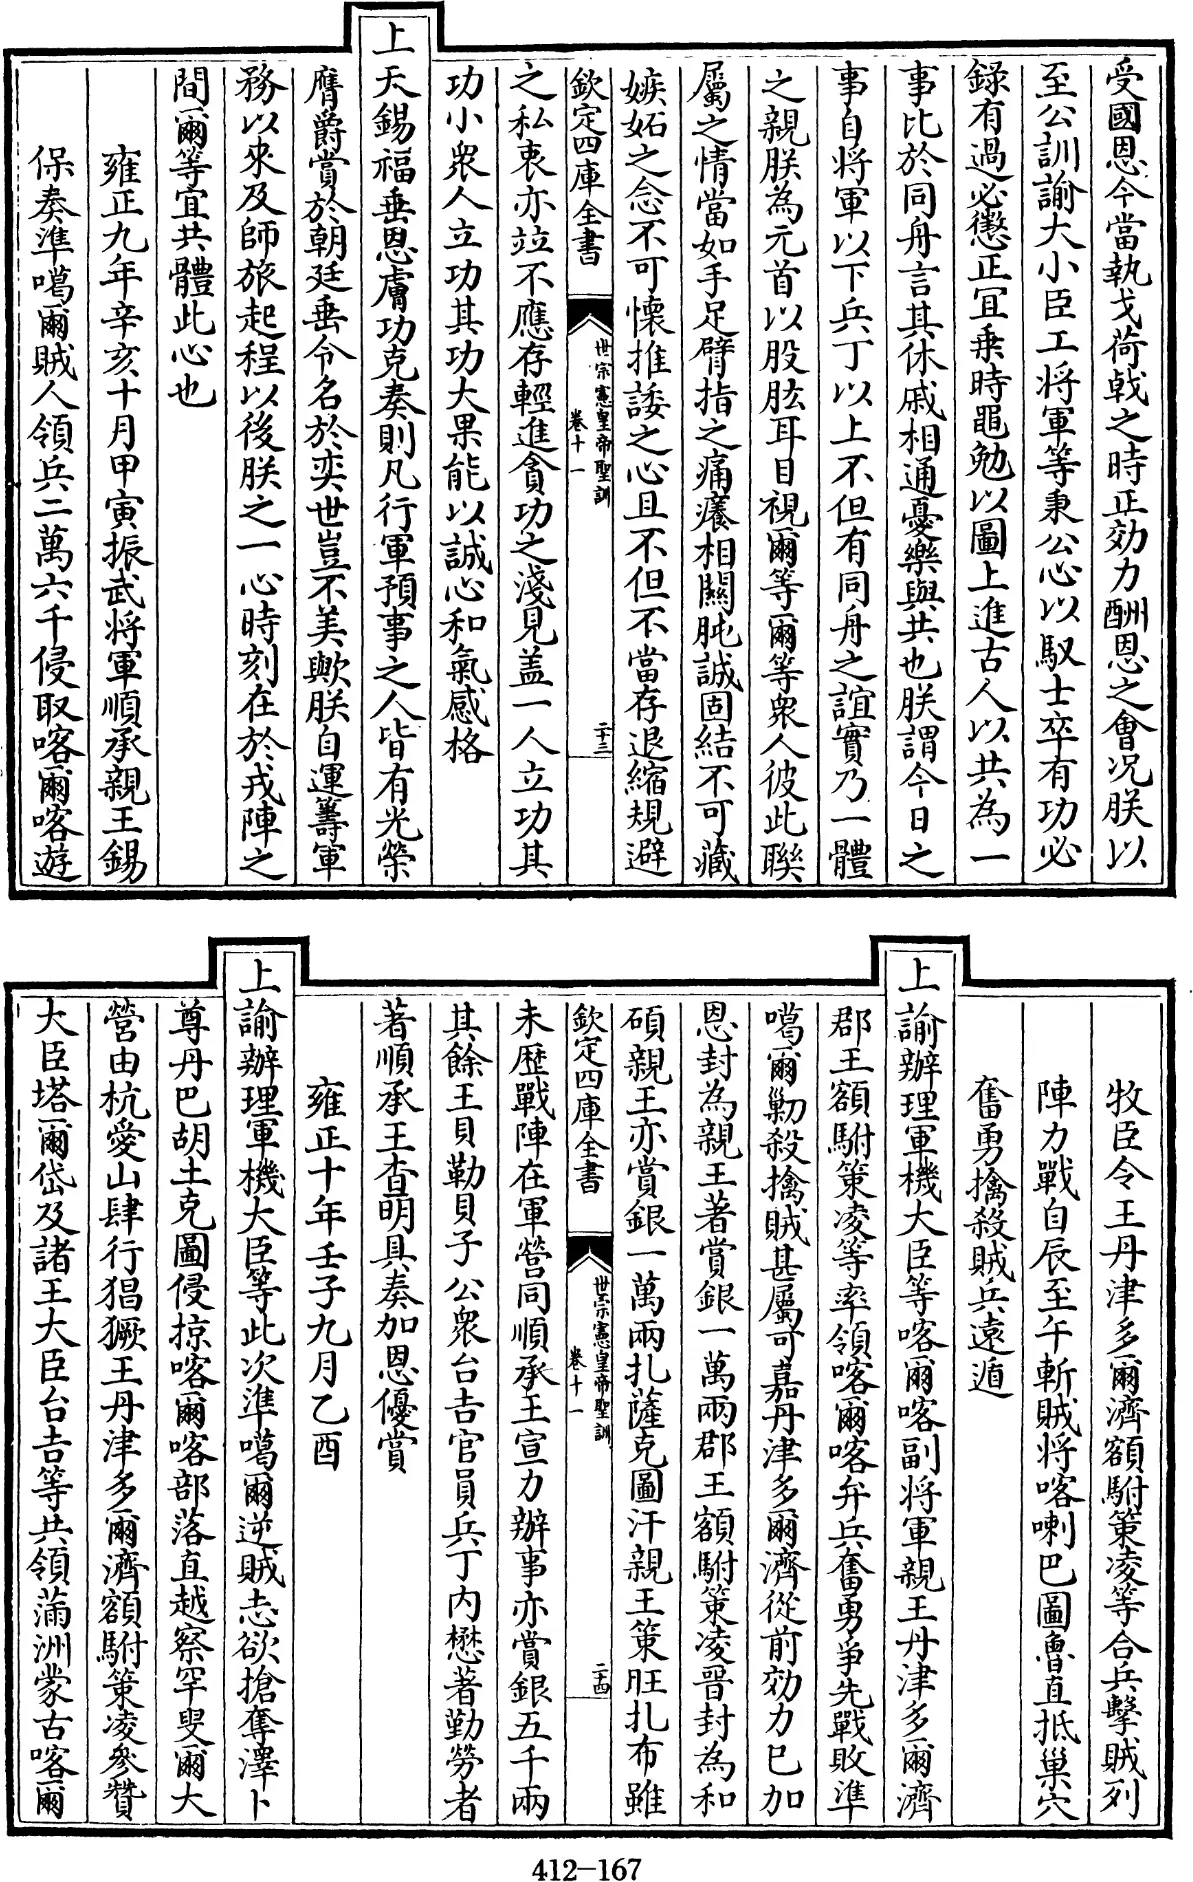 受國恩今當執戈荷戟之時正効力酬恩之會况朕以
至公訓諭大小臣工将軍等秉公心以馭士卒有功必
錄有過必懲正宜乗時黽勉以圖上進古人以共為一
事比於同舟言其休戚相通憂樂與共也朕謂今日之
事自将軍以下兵丁以上不但有同舟之誼實乃一體
之親朕為元首以股肱耳目視爾等爾等衆人彼此聯
屬之情當如手足臂指之痛癢相關肫誠固結不可藏
嫉妬之念不可懐推諉之心且不但不當存退縮規避
欽定四庫全書
世宗憲皇帝聖訓
卷十一
二十三
之私衷亦竝不應存輕進貪功之淺見盖一人立功其
功小衆人立功其功大果能以誠心和氣感格
上天錫福垂恩膚功克奏則凡行軍預事之人皆有光榮
膺爵賞於朝廷垂令名於奕世豈不美歟朕自運籌軍
務以來及師旅起程以後朕之一心時刻在於戎陣之
間爾等宜共體此心也
雍正九年辛亥十月甲寅振武将軍順承親王錫
保奏準噶爾賊人領兵二萬六千侵取喀爾喀遊
牧臣令王丹津多爾濟額駙策凌等合兵擊賊列
陣力戰自辰至午斬賊将喀喇巴圖魯直抵巢穴
奮勇擒殺賊兵遠遁
上諭辦理軍機大臣等喀爾喀副将軍親王丹津多爾濟
郡王額駙策凌等率領喀爾喀弁兵奮勇爭先戰敗準
噶爾勦殺擒賊甚屬可嘉丹津多爾濟從前効力已加
恩封為親王著賞銀一萬兩郡王額駙策凌晉封為和
碩親王亦賞銀一萬兩扎薩克圖汗親王策旺扎布雖
欽定四庫全書
世宗憲皇帝聖訓
卷十一
二十四
未歴戰陣在軍營同順承王宣力辦事亦賞銀五千兩
其餘王貝勒貝子公衆台吉官員兵丁内懋著勤勞者
著順承王查明具奏加恩優賞
雍正十年壬子九月乙酉
上諭辦理軍機大臣等此次準噶爾逆賊志欲搶奪澤卜
尊丹巴胡土克圖侵掠喀爾喀部落直越察罕叟爾大
營由杭愛山肆行猖獗王丹津多爾濟額駙策凌參贊
大臣塔爾岱及諸王大臣台吉等共領滿洲蒙古喀爾
412-167